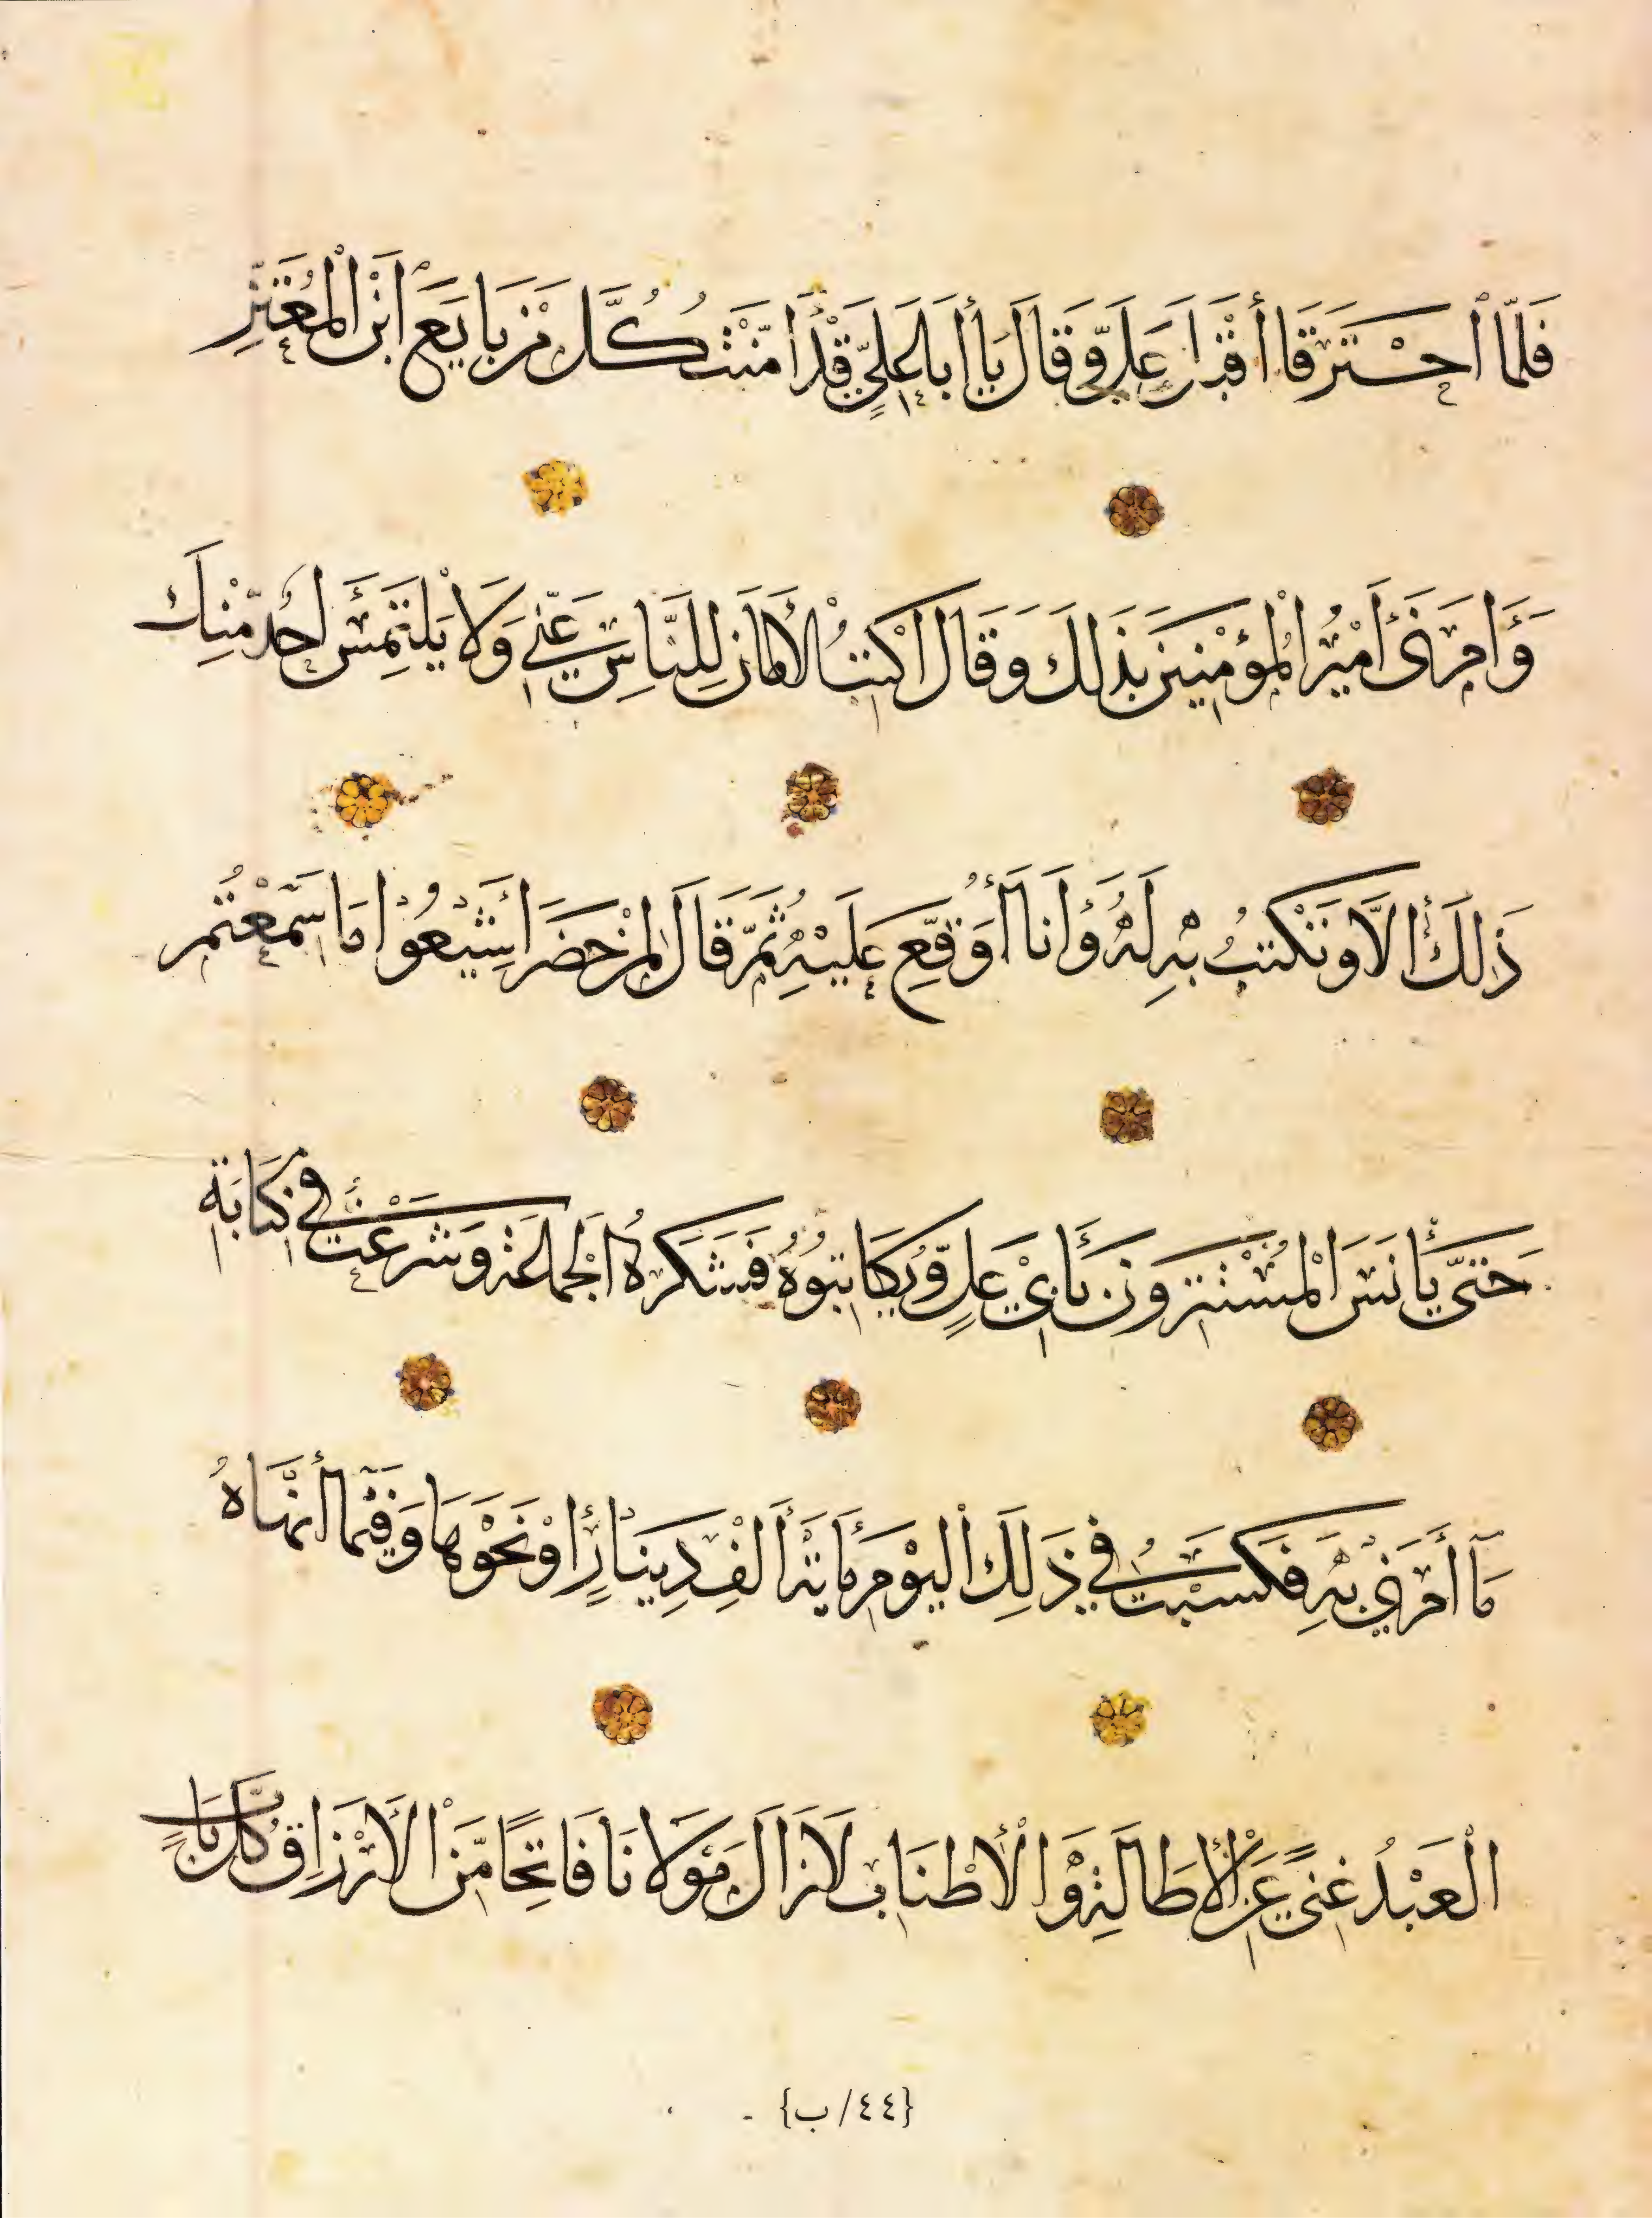 فَلَمَّا ٱحْتَرَقَا أَقْبَلَ عَلَيَّ وَقَالَ يَا أَبَا عَلِيٍّ قَدْ أَمَّنْتُ كُلَّ مَنْ بَايَعَ ابْنَ الْمُعْتَزِّ
وَأَمَرَنِي أَمِيْرُ الْمُؤْمِنِينَ بِذَلِكَ وَقَالَ اكْتُبْ الْأَمَانَ لِلنَّاسِ عَنِّي وَلَا يَلْتَمِسْ أَحَدٌ مِنْكَ
ذَلِكَ إِلَّا وَتَكْتُبُ بِهِ لَهُ وَأَنَا أُوَقِّعُ عَلَيْهِ ثُمَّ قَالَ لِمَنْ حَضَرَ أَشِيْعُوْا مَا سَمِعْتُمْ
حَتَّى يَأْنَسَ الْمُسْتَتِرُونَ بِأَبِي عَلِيٍّ وَيُكَاتِبُوهُ فَشَكَرَهُ الْجَمَاعَةُ وَشَرَعْتُ فِي كِتَابَةِ
مَآ أَمَرَنِي بِهِ فَكَسَبْتُ فِي ذَلِكَ الْيَوْمِ مِائَةَ أَلْفِ دِينَارٍ أَوْ نَحْوَهَا وَفِيْمَا أَنْهَاهُ
الْعَبْدُ غِنًى عَنِ الْإِطَالَةِ وَالْأَطْنَابِ لَازَالَ مَوْلَانَا فَاتِحًا مِنَ الْأَرْزَاقِ كُلَّ بَابٍ
{٤٤/ب}